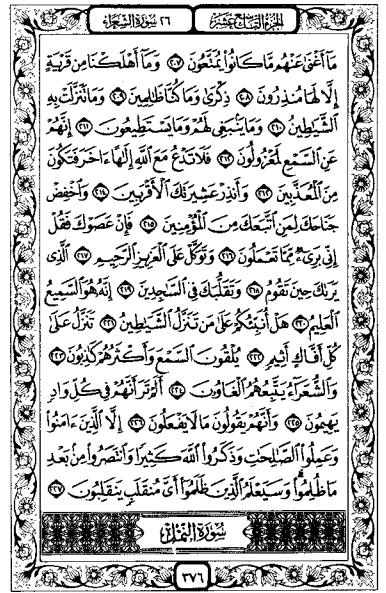 الجزء التاسع عشر ٢٦ سورة الشعراء
مَا أَغْنَىٰ عَنْهُم مَّا كَانُوا يُمَتَّعُونَ ٢٠٧ وَمَا أَهْلَكْنَا مِن قَرْيَةٍ
إِلَّا لَهَا مُنذِرُونَ ٢٠٨ ذِكْرَىٰ وَمَا كُنَّا ظَالِمِينَ ٢٠٩ وَمَا تَنَزَّلَتْ بِهِ
الشَّيَاطِينُ ٢١٠ وَمَا يَنبَغِي لَهُمْ وَمَا يَسْتَطِيعُونَ ٢١١ إِنَّهُمْ
عَنِ السَّمْعِ لَمَعْزُولُونَ ٢١٢ فَلَا تَدْعُ مَعَ اللَّهِ إِلَٰهًا آخَرَ فَتَكُونَ
مِنَ الْمُعَذَّبِينَ ٢١٣ وَأَنذِرْ عَشِيرَتَكَ الْأَقْرَبِينَ ٢١٤ وَاخْفِضْ
جَنَاحَكَ لِمَنِ اتَّبَعَكَ مِنَ الْمُؤْمِنِينَ ٢١٥ فَإِنْ عَصَوْكَ فَقُلْ
إِنِّي بَرِيءٌ مِّمَّا تَعْمَلُونَ ٢١٦ وَتَوَكَّلْ عَلَى الْعَزِيزِ الرَّحِيمِ ٢١٧ الَّذِي
يَرَاكَ حِينَ تَقُومُ ٢١٨ وَتَقَلُّبَكَ فِي السَّاجِدِينَ ٢١٩ إِنَّهُ هُوَ السَّمِيعُ
الْعَلِيمُ ٢٢٠ هَلْ أُنَبِّئُكُمْ عَلَىٰ مَن تَنَزَّلُ الشَّيَاطِينُ ٢٢١ تَنَزَّلُ عَلَىٰ
كُلِّ أَفَّاكٍ أَثِيمٍ ٢٢٢ يُلْقُونَ السَّمْعَ وَأَكْثَرُهُمْ كَاذِبُونَ ٢٢٣
وَالشُّعَرَاءُ يَتَّبِعُهُمُ الْغَاوُونَ ٢٢٤ أَلَمْ تَرَ أَنَّهُمْ فِي كُلِّ وَادٍ
يَهِيمُونَ ٢٢٥ وَأَنَّهُمْ يَقُولُونَ مَا لَا يَفْعَلُونَ ٢٢٦ إِلَّا الَّذِينَ آمَنُوا
وَعَمِلُوا الصَّالِحَاتِ وَذَكَرُوا اللَّهَ كَثِيرًا وَانتَصَرُوا مِن بَعْدِ
مَا ظُلِمُوا وَسَيَعْلَمُ الَّذِينَ ظَلَمُوا أَيَّ مُنقَلَبٍ يَنقَلِبُونَ ٢٢٧
سورة النمل
٣٧٦